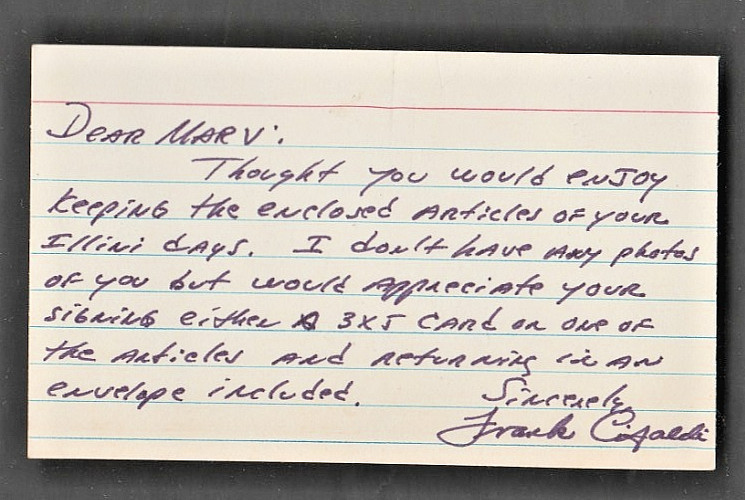 Dear Marv:
Thought you would enjoy
keeping the enclosed articles of your
Illini days. I don't have any photos
of you but would appreciate your
signing either a 3x5 card or one of
the articles and returning in an
envelope included.
Sincerely,
Frank